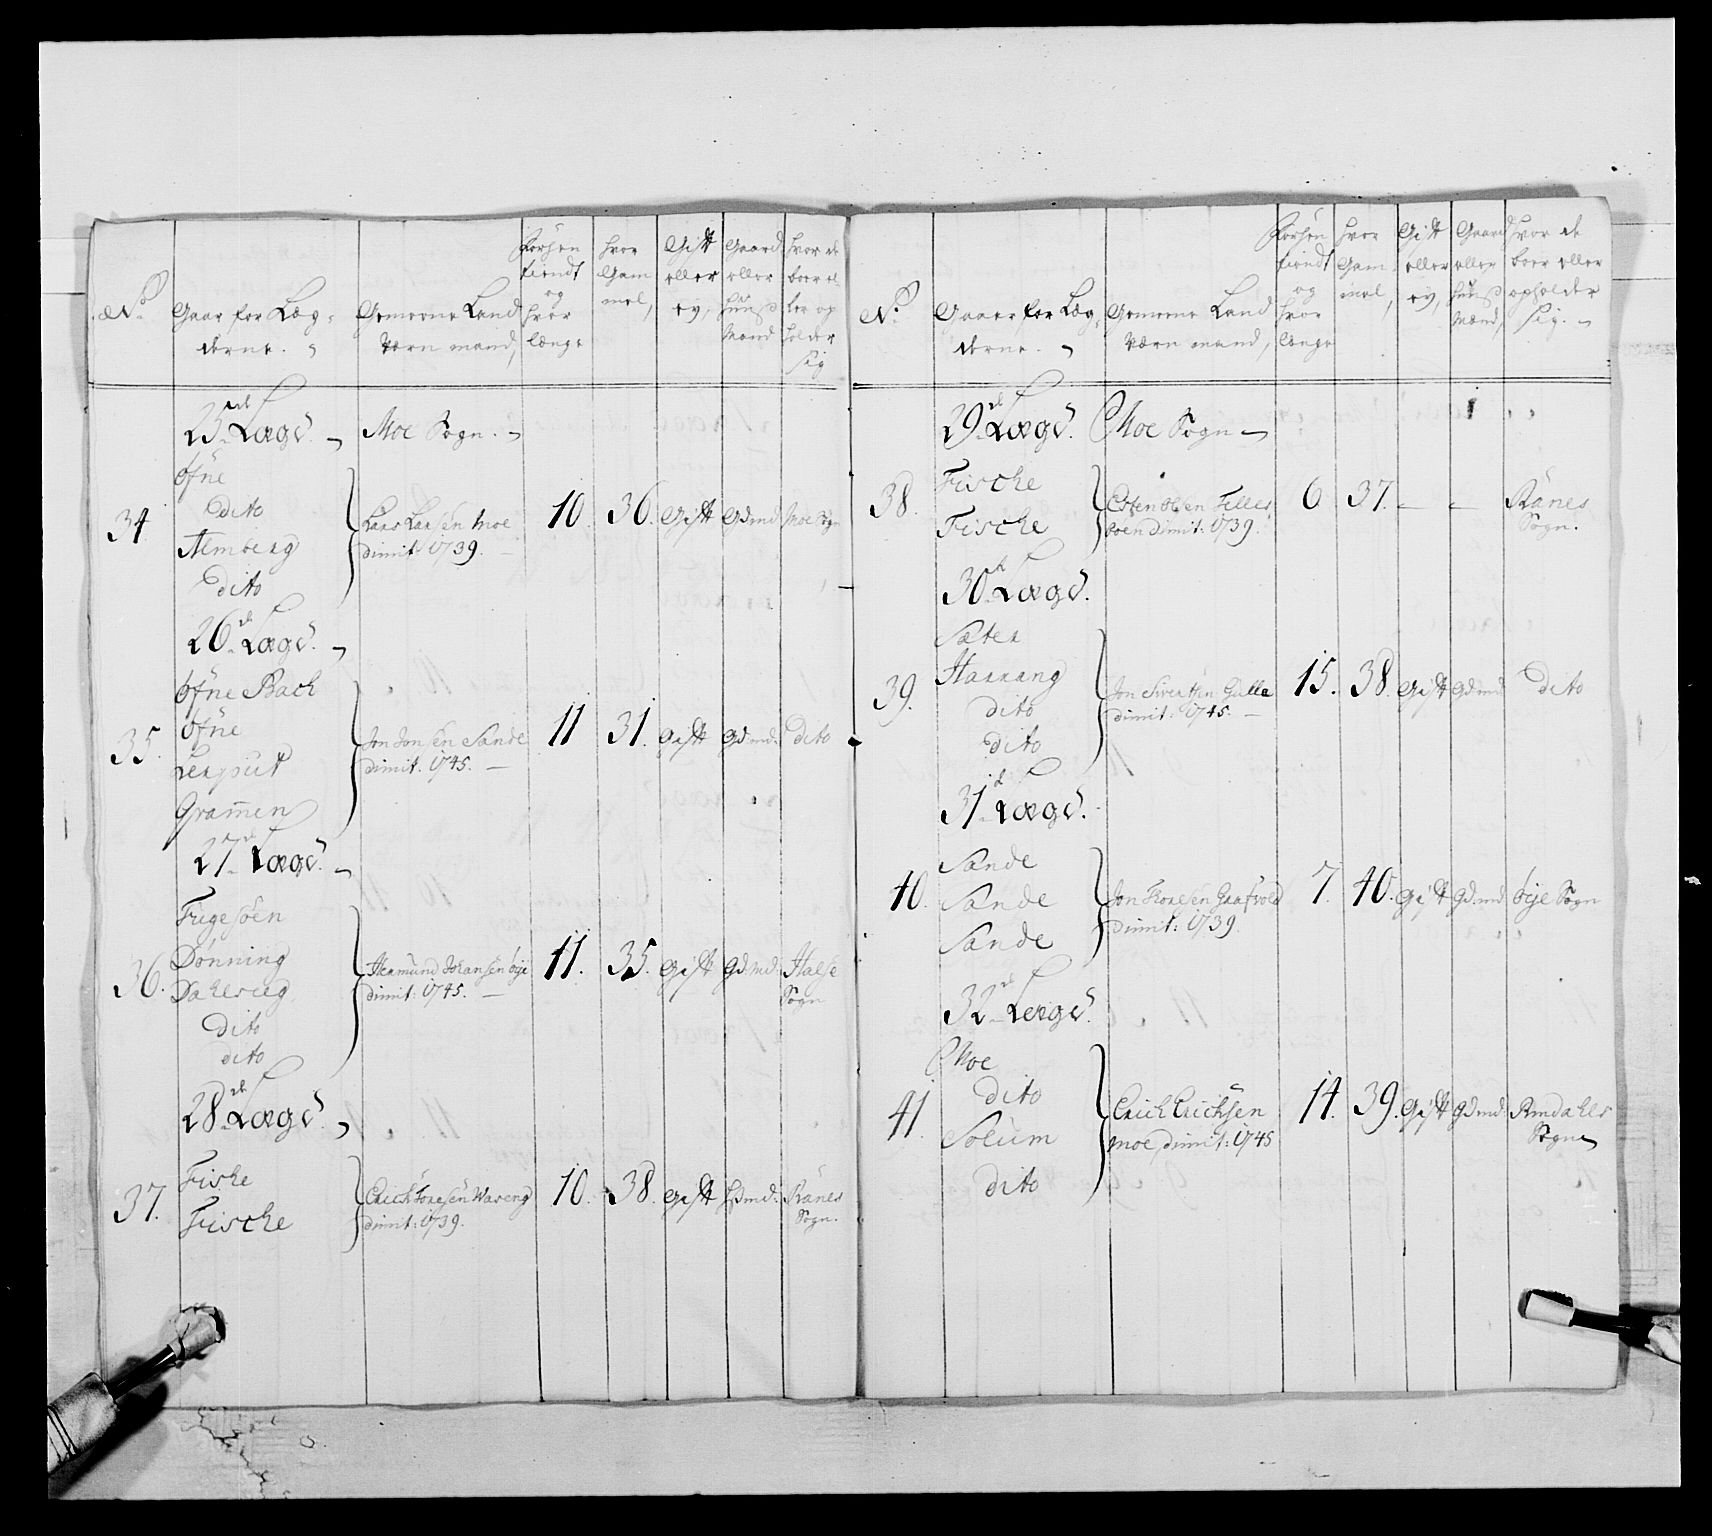 No.
Gaar for Læg-
derne.
Gemeene Land
Værn mand,
fortjen
tiendt
og
hvor
længe
hvor
Gam
mel,
Gift
eller
ey,
Gaard
eller
Huus
Mand
hvor de
boer el-
ler op
holder
sig
25de Lægd.
Moe Sogn.
34
öfne
dito
Almberg
dito
Lars Larsen Moe
dimit 1739.
10. 36. Gift Gdmd Moe Sogn
26de Lægd.
35.
öfne Bach
öfne
Gram̄en
Jon Jonsen Sande
dimit. 1745.
11 31. Gift Gdmd. Dito
27de Lægd.
36.
Dønning
Dito
dito
Hermund Johansen öje
dimit: 1745.
11. 35. Gift Gdmd. Halse
Sogn
28de Lægd.
37.
Fiske
Fische
Erich Toresen Wareng
dimit: 1739.
10. 38. Gift Hsmd: Ranes
Sogn.
No.
Gaarer for Læg-
derne.
Gemeene Land
Værn mand,
fortjen
tiendt
og
hvor
længe
hvor
Gam-
mel,
Gift
eller
ey,
Gaard
eller
Huus
Mænd,
hvor de
boer eller
opholder
sig.
29de Lægd.
Moe Sogn
38.
Fische
Fische
Esten Olsen Teller
boen dimit: 1739.
6 37. — — Ranes
Sogn.
30de Lægd.
39.
Sæter
Harrang
dito
dito
Jon Sivertsen Gulla
dimit: 1745.
15. 38. Gift Gdmd. Dito
31de Lægd.
40.
Sande
Sande
Sande
Jon Toresen Graafvold
dimit: 1739.
7. 40. Gift Gdmd öje Sogn
32de Lægd.
41.
Moe
dito
Solum
dito
Erich Erichsen
Moe, dimit: 1745
14. 39. Gift Gdmd. Rindahls
Sogn